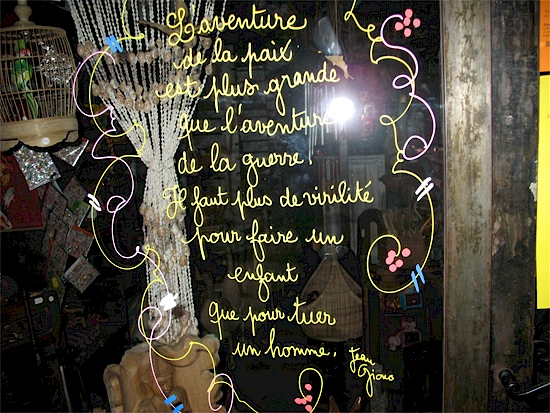 L'aventure
de la paix
est plus grande
que l'aventure
de la guerre.
Il faut plus de virilité
pour faire un
enfant
que pour tuer
un homme.
Jean
Giono